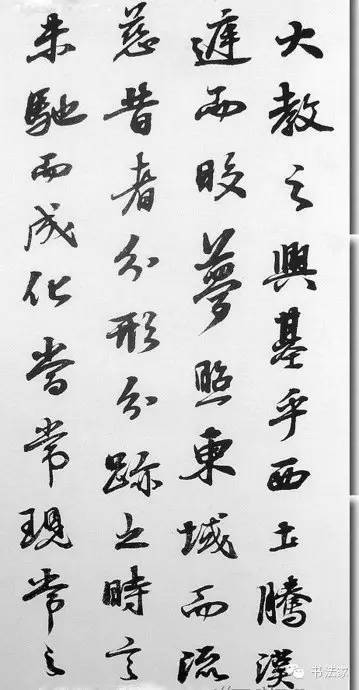 大教之興基乎西土騰漢
庭而皎夢照東域而流
慈昔者分形分跡之時言
未馳而成化當常現常之
书法家